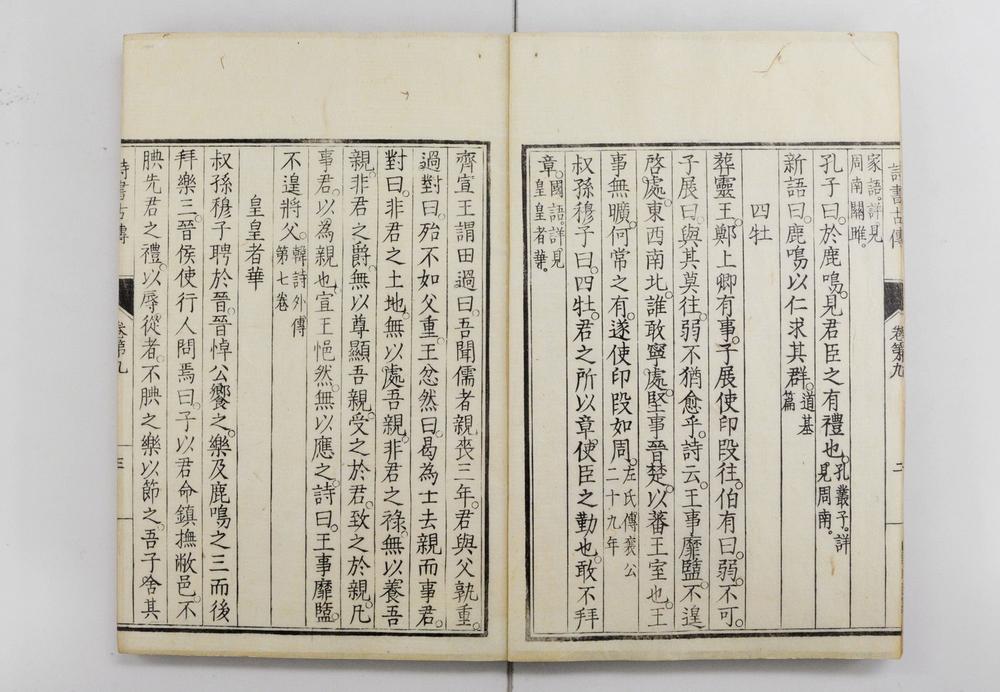 詩書古傳
卷第九
二
家語。詳見
周南關雎。
孔子曰。於鹿鳴。見君臣之有禮也。孔叢子。詳
見周南。
新語曰。鹿鳴以仁求其群。道基
篇
四牡
葬靈王。鄭上卿有事。子展使印段往。伯有曰。弱。不可。
子展曰。與其莫往。弱不猶愈乎。詩云。王事靡盬。不遑
啓處。東西南北。誰敢寧處。堅事晉楚。以蕃王室也。王
事無曠。何常之有。遂使印段如周。左氏傳襄公
二十九年
叔孫穆子曰。四牡。君之所以章使臣之勤也。敢不拜
章。國語。詳見
皇皇者華。
齊宣王謂田過曰。吾聞儒者親喪三年。君與父孰重。
過對曰。殆不如父重。王忿然曰。曷為士去親而事君。
對曰。非君之土地。無以處吾親。非君之祿。無以養吾
親。非君之爵。無以尊顯吾親。受之於君。致之於親。凡
事君。以為親也。宣王悒然。無以應之。詩曰。王事靡盬。
不遑將父。韓詩外傳
第七卷
皇皇者華
叔孫穆子聘於晉。晉悼公饗之。樂及鹿鳴之三而後
拜樂三。晉侯使行人問焉。曰。子以君命鎮撫敝邑。不
腆先君之禮。以辱從者。不腆之樂以節之。吾子舍其
詩書古傳
卷第九
三